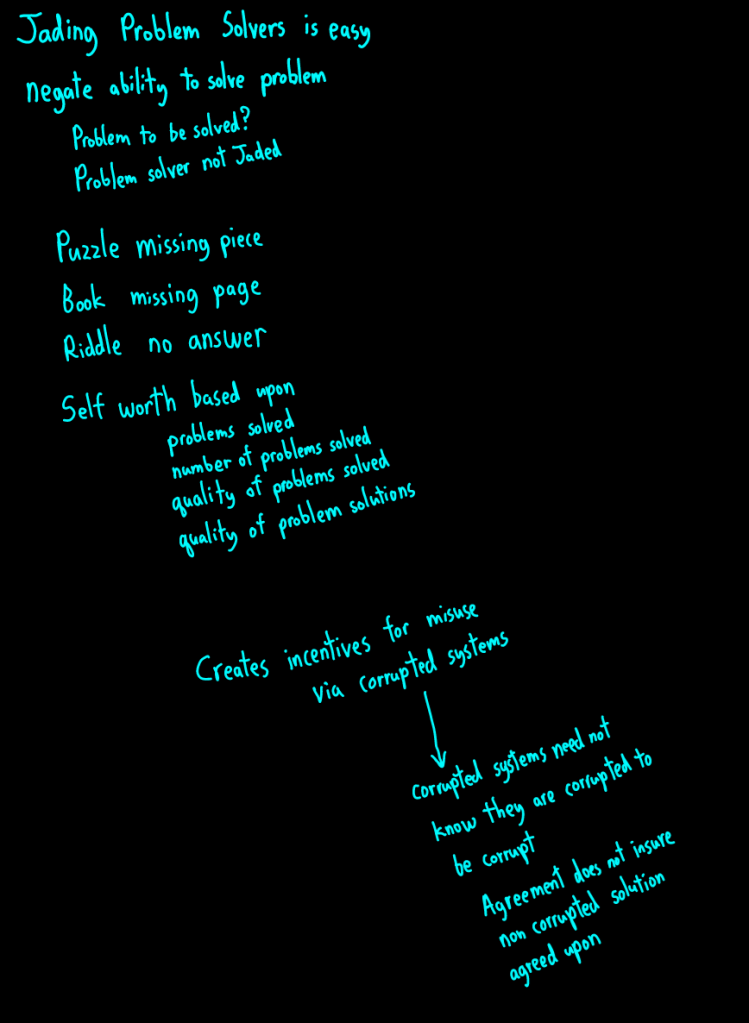 Jading Problem Solvers is easy
negate ability to solve problem
Problem to be solved?
Problem solver not Jaded
Puzzle missing piece
Book missing page
Riddle no answer
Self worth based upon
problems solved
number of problems solved
quality of problems solved
quality of problem solutions
Creates incentives for misuse
via corrupted systems
corrupted systems need not
know they are corrupted to
be corrupt
Agreement does not insure
non corrupted solution
agreed upon